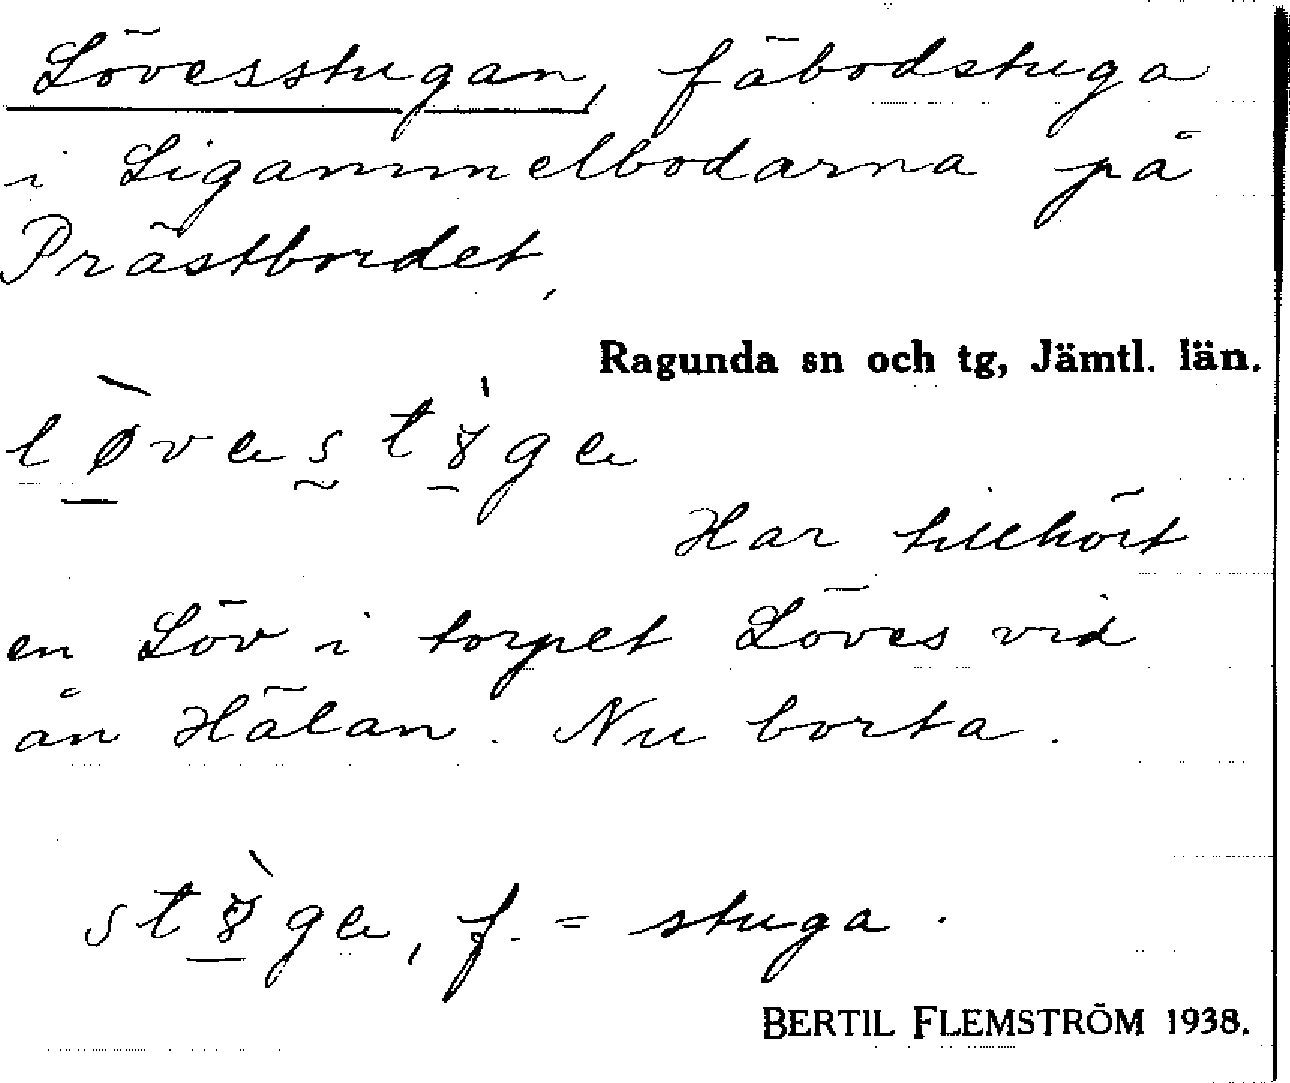 Lövesstugan, fäbodstuga
i Ligammelbodarna på
Prästbordet,
Ragunda sn och tg, Jämtl. län.
Har tillhört
en Löv i torpet Löves vid
ån Hälan. Nu borta.
f. = stuga.
BERTIL FLEMSTRÖM 1938.